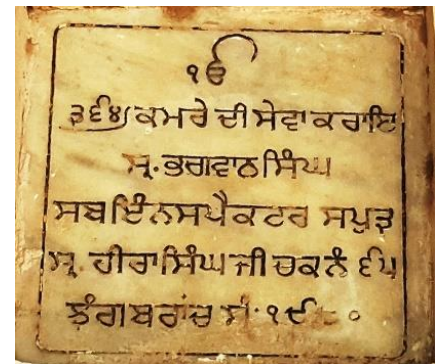 ੴ
੩੬੪/ ਕਮਰੇ ਦੀ ਸੇਵਾ ਕਰਾਇ
ਸ੍ਰ. ਭਗਵਾਨ ਸਿੰਘ
ਸਬ ਇੰਨਸਪੈਕਟਰ ਸਪੁਤ੍ਰ
ਸ੍ਰ. ਹੀਰਾ ਸਿੰਘ ਜੀ ਚਕ ਨੰ ੬੫
ਝੰਗ ਬਰਾਂਚ ਸੰ. ੧੯੮੦